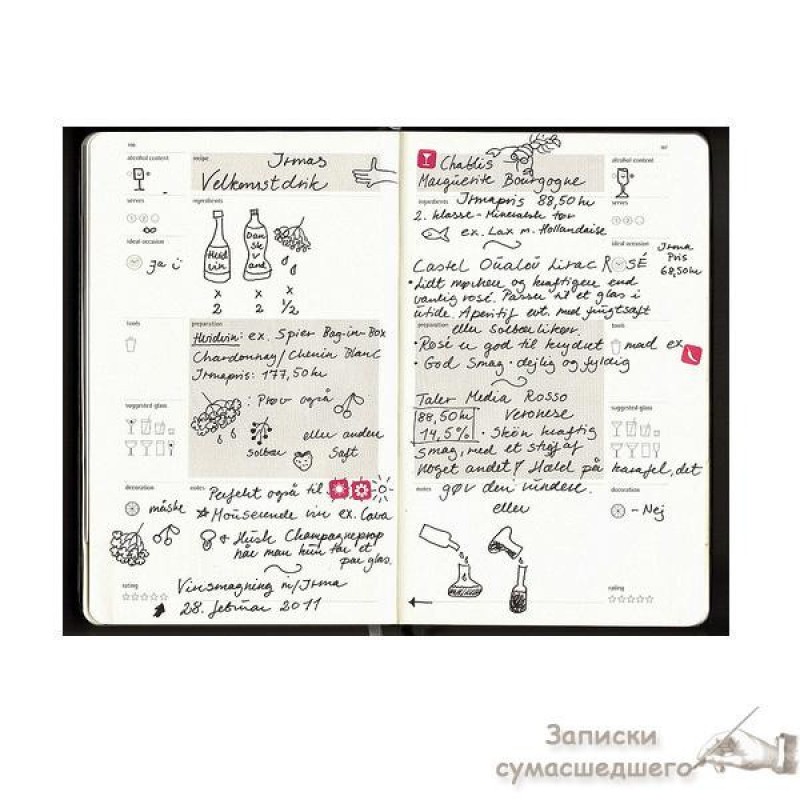 106
alcohol content
recipe
Irmas
Velkomstdrik
serves
ingredients
1 2
∞
Hvid
vin
Dan
sk
vand
ideal occasion
Ja
x x x
2 2 1/2
tools
preparation
Hvidvin: ex. Spier Bag-in-Box
Chardonnay/Chenin Blanc
Irmapris: 177,50 kr
: Prøv også
eller anden
Solbær
Saft
suggested glass
decoration
måske
notes
Perfekt også til
Mousserende vin ex. Cava
+ Husk Champagneprop
når man kun tar et
par glas.
rating
Vinsmagning m/Irma
28. februar 2011
107
Chablis
Marguerite Bourgogne
alcohol content
ingredients
Irmapris 88,50 kr
2. klasse - Mineralsk tør
ex. Lax m. Hollandaise
serves
1 2
ideal occasion
Irma
Pris
68,50 kr
Castel Lirac ROSÉ
• Lidt mørkere og kraftigere end
vanlig rosé. Passer til et glas i
utide. Aperitif evt. med frugtsaft
preparation
eller solbærlikør.
• Rosé er god til krydret mad ex
• God Smag - dejlig og fyldig
tools
Taler Media Rosso
88,50 kr Veronese
14,5% • Skøn kraftig
smag, med et strejf af
noget andet! Hæld på karafel, det
suggested glass
notes
gør den rundere.
eller
decoration
- Nej
rating
Записки
сумасшедшего